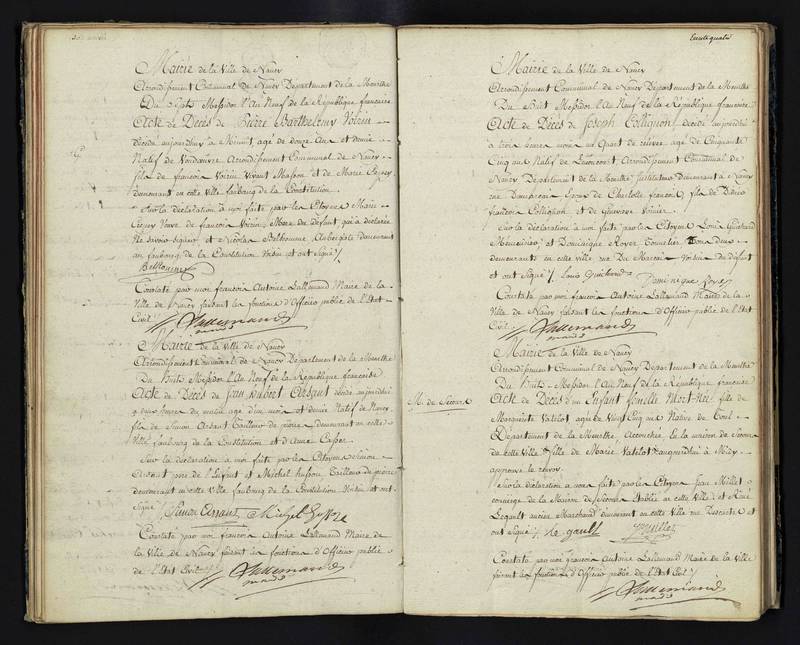 Mairie de la Ville de Nancy
Arrondissement Communal de Nancy Département de la Meurthe
Du Sept Messidor l'An Neuf de la République française
Acte de Décès de Pierre Barthelemy Voirin
décédé aujourdhuy à Minuit, agé de douze Ans et demie
Natif de Vandœuvre Arrondissement Communal de Nancy
fils de françois Voirin Vivant Masson et de Marie
demeurant en cette Ville faubourg de la Constitution
Sur la déclaration à moi faite par les Citoyens Marie
Veuve de françois Voirin, Mere du défunt, qui à déclarée
ne savoir signer et Nicolas Belhomme Aubergiste demeurant
au faubourg de la Constitution Voisin et ont Signé
Belhomme
Constaté par moi françois Antoine Lallemand Maire de la
Ville de Nancy faisant les fonctions d'Officier public de l'Etat
Civil
Lallemand
Mairie de la Ville de Nancy
Arrondissement Communal de Nancy Département de la Meurthe
Du Huit Messidor l'An Neuf de la République française
Acte de Décès de Jean hubert Arsant décédé aujourdhui
à heures du matin agé d'un mois et demie Natif de Nancy
fils de Simon Arsant Tailleur de pierre, demeurant en cette
Ville faubourg de la Constitution et d'Anne Casper
Sur la déclaration à moi faite par les Citoyens Simon
Arsant pere de l'Enfant et Michel Tailleur de pierre
demeurant en cette Ville faubourg de la Constitution Voisin et ont
Signé Simon Arsant Michel
Constaté par moi françois Antoine Lallemand Maire de
la Ville de Nancy faisant les fonctions d'Officier public
de l'Etat Civil
Lallemand
Mairie de la Ville de Nancy
Arrondissement Communal de Nancy Département de la Meurthe
Du Huit Messidor l'An Neuf de la République française
Acte de Décès de Joseph Collignon décédé aujourdhui
à trois heures moins un quart de relevée agé de Cinquante
Cinq ans Natif de Arrondissement Communal de
Nancy Département de la Meurthe, Instituteur Demeurant à Nancy
rue Epoux de Charlotte françois, fils de
françois Collignon et de Voinier
Sur la déclaration à moi faite par les Citoyens Louis Guichard
Menuisier et Dominique Royer Tonnelier tous deux
demeurants en cette Ville rue Du Voisin du Défunt
et ont Signé Louis Guichard Dominique Royer
Constaté par moi françois Antoine Lallemand Maire de la
Ville de Nancy faisant les fonctions d'Officier public de l'Etat
Civil
Lallemand
Mairie de la Ville de Nancy
Arrondissement Communal de Nancy Département de la Meurthe
Du Huit Messidor l'An Neuf de la République française
M. de Secours
Acte de Décès d'un Enfant femelle Mort-Né fille de
Marguerite Vatelot agée de Vingt Cinq ans Native de Toul
Département de la Meurthe Accouchée à la maison de Secours
de cette Ville fille de Marie Vatelot aujourdhui à Midy
approuvé le renvoy
Sur la déclaration à moi faite par les Citoyens Jean Millet
concierge de la Maison de Secours Etablie en cette Ville et René
Legault ancien Marchand demeurant en cette Ville rue Descartes et
ont Signé le gault Jmillet
Constaté par moi françois Antoine Lallemand Maire de la Ville
faisant les fonctions d'Officier public de l'Etat Civil
Lallemand